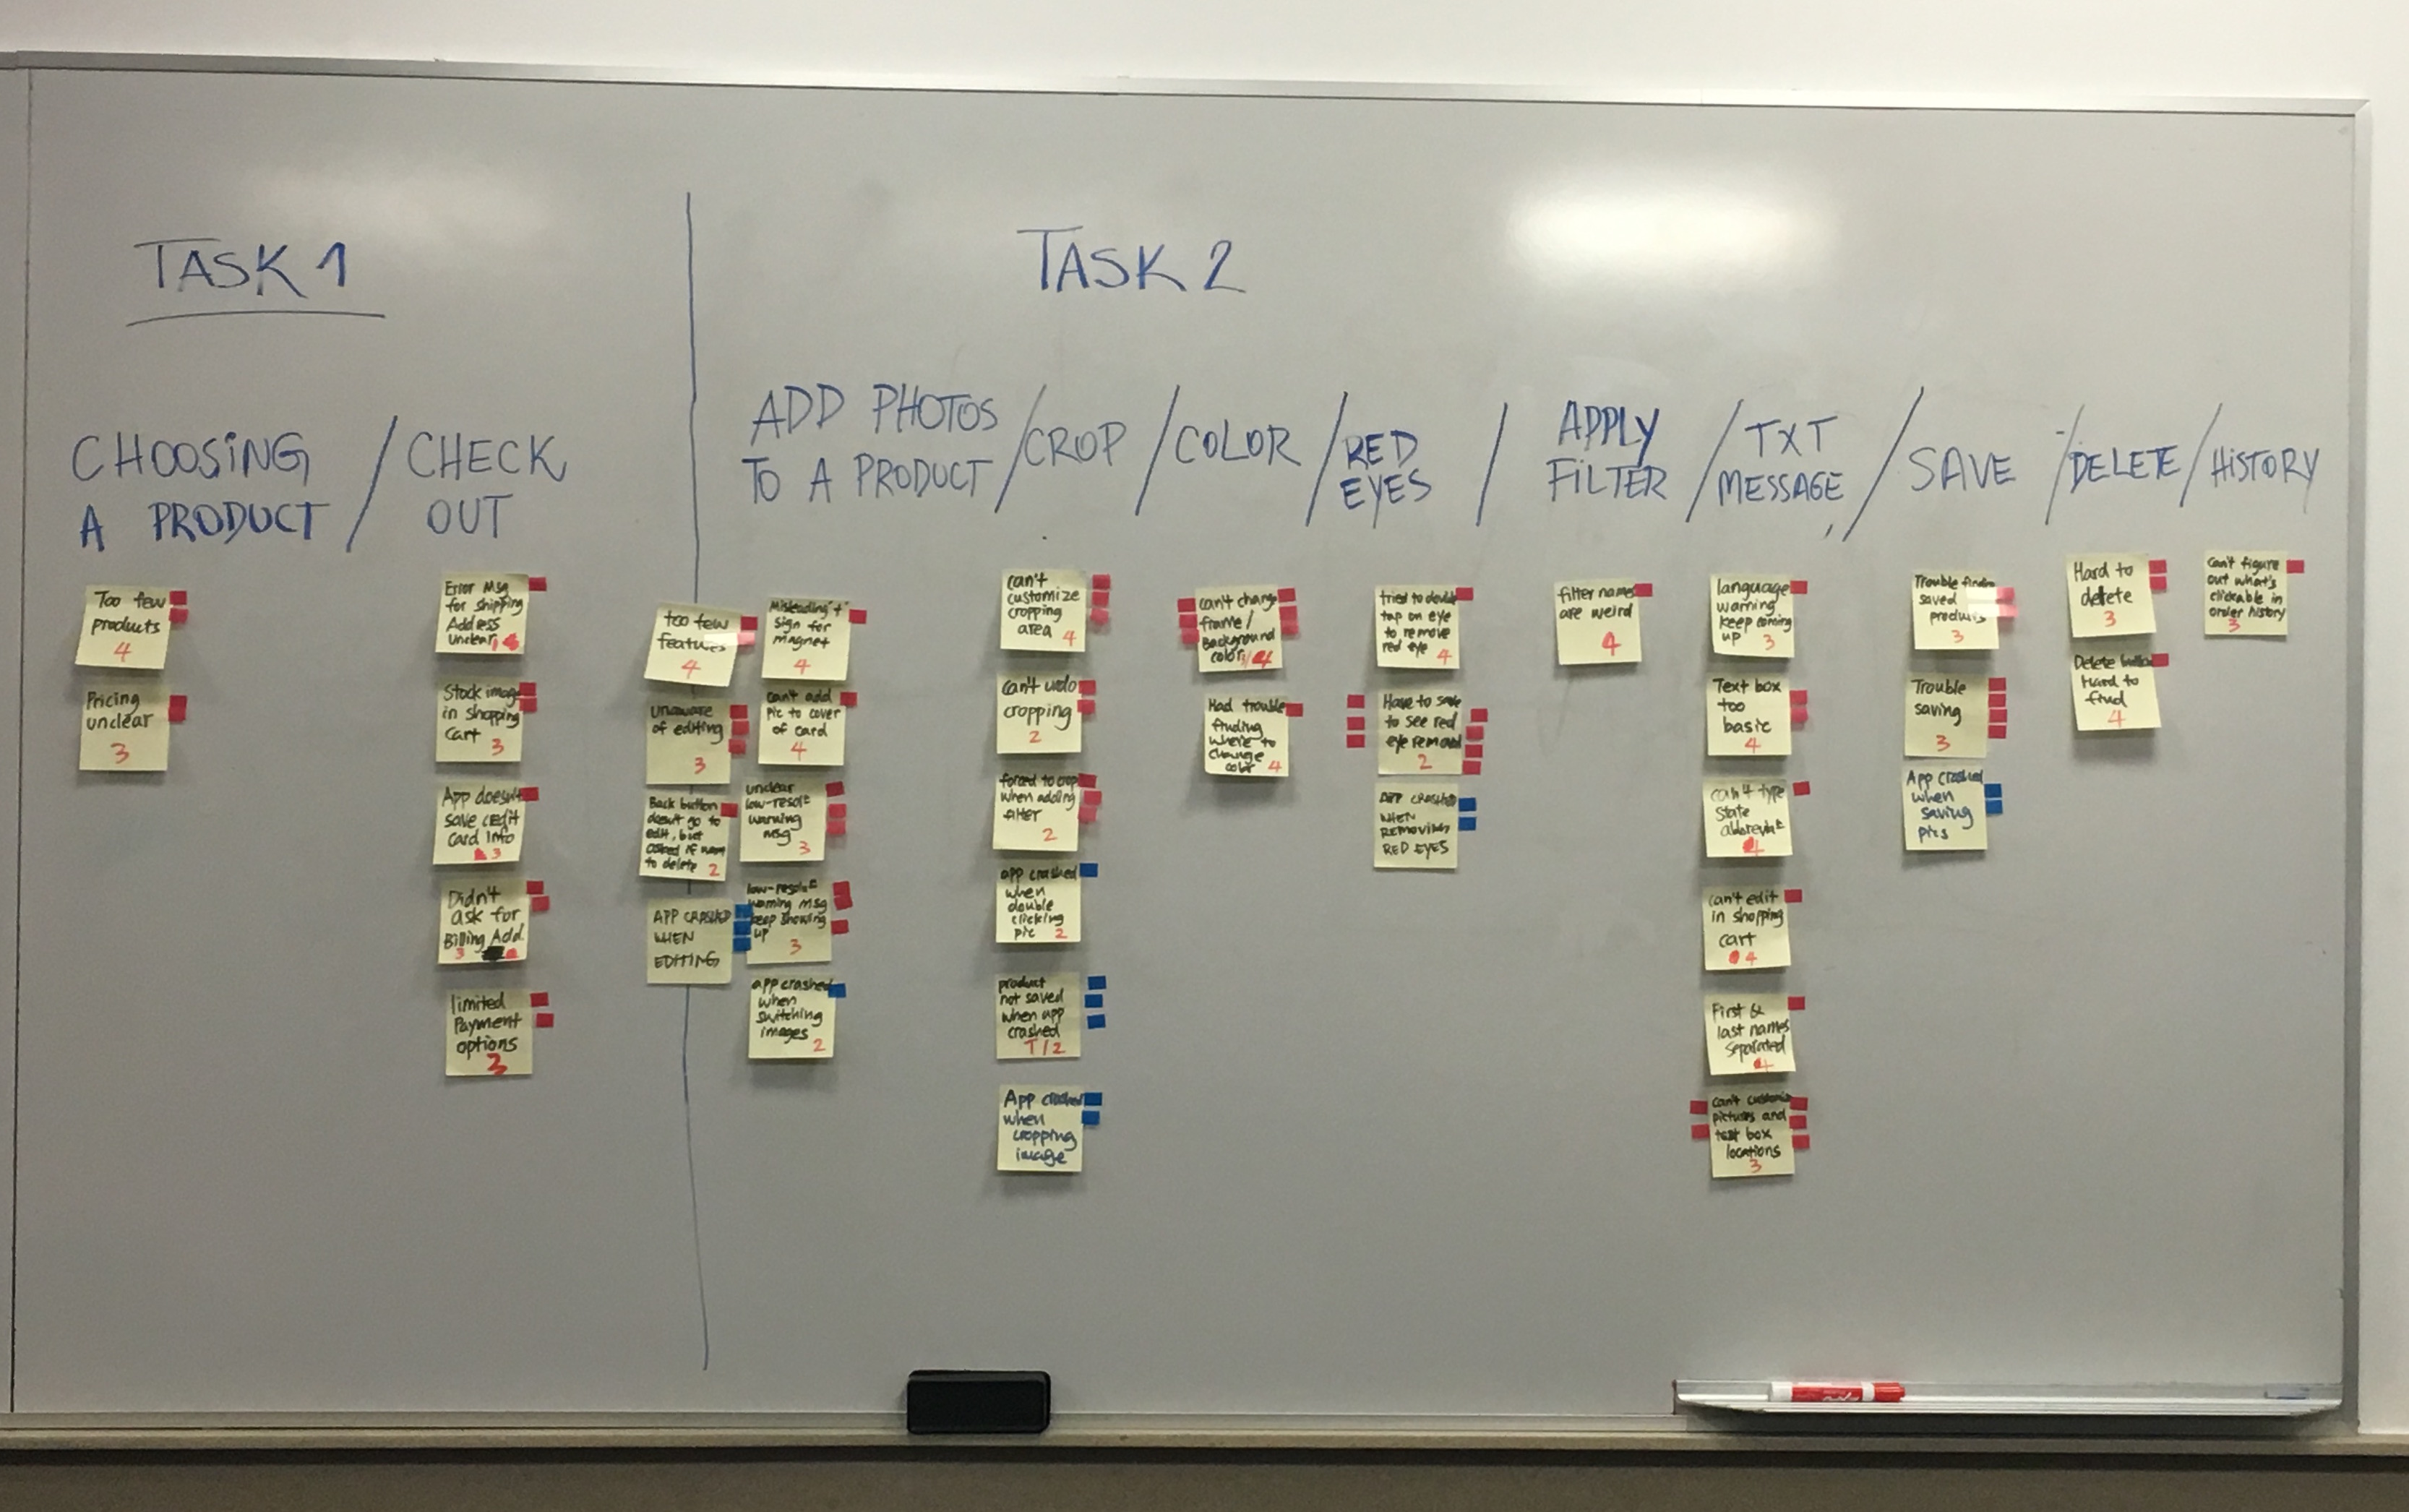 TASK 1
TASK 2
CHOOSING
A PRODUCT
/
CHECK
OUT
ADD PHOTOS
TO A PRODUCT
/
CROP
/
COLOR
/
RED
EYES
/
APPLY
FILTER
/
TXT
MESSAGE
/
SAVE
/
DELETE
/
HISTORY
Too few
products
4
Pricing
unclear
3
Error Msg
for shipping
Address
unclear
4
Stock image
in shopping
cart 3
App doesn't
save credit
card info
3
Didn't
ask for
Billing Add.
3
limited
Payment
options
3
too few
features
4
unaware
of editing
3
Back button
doesn't go to
edit, but
asked if want
to delete 2
APP CRASHED
WHEN
EDITING
Misleading "+"
sign for
magnet
4
can't add
pic to cover
of card
4
unclear
low-resol
warning
msg
3
low-resol
warning msg
keep showing
up
3
app crashed
when
switching
images
2
can't
customize
cropping
area 4
can't undo
cropping
2
forced to crop
when adding
filter
2
app crashed
when
double
clicking
pic 2
product
not saved
when app
crashed
T/2
App crashed
when
cropping
image
can't change
frame/
Background
color 4
Had trouble
finding
where to
change
color 4
tried to double
tap on eye
to remove
red eye 4
Have to save
to see red
eye removal
2
APP CRASHED
WHEN
REMOVING
RED EYES
filter names
are weird
4
language
warning
keep coming
up 3
Text box
too
basic
4
can't type
state
4
can't edit
in shopping
cart
4
First &
last names
separated
4
can't customize
pictures and
text box
locations
3
Trouble finding
saved
products
3
Trouble
saving
3
App crashed
when
saving
pics
Hard to
delete
3
Delete button
Hard to
find
4
Can't figure
out what's
clickable in
order history
3